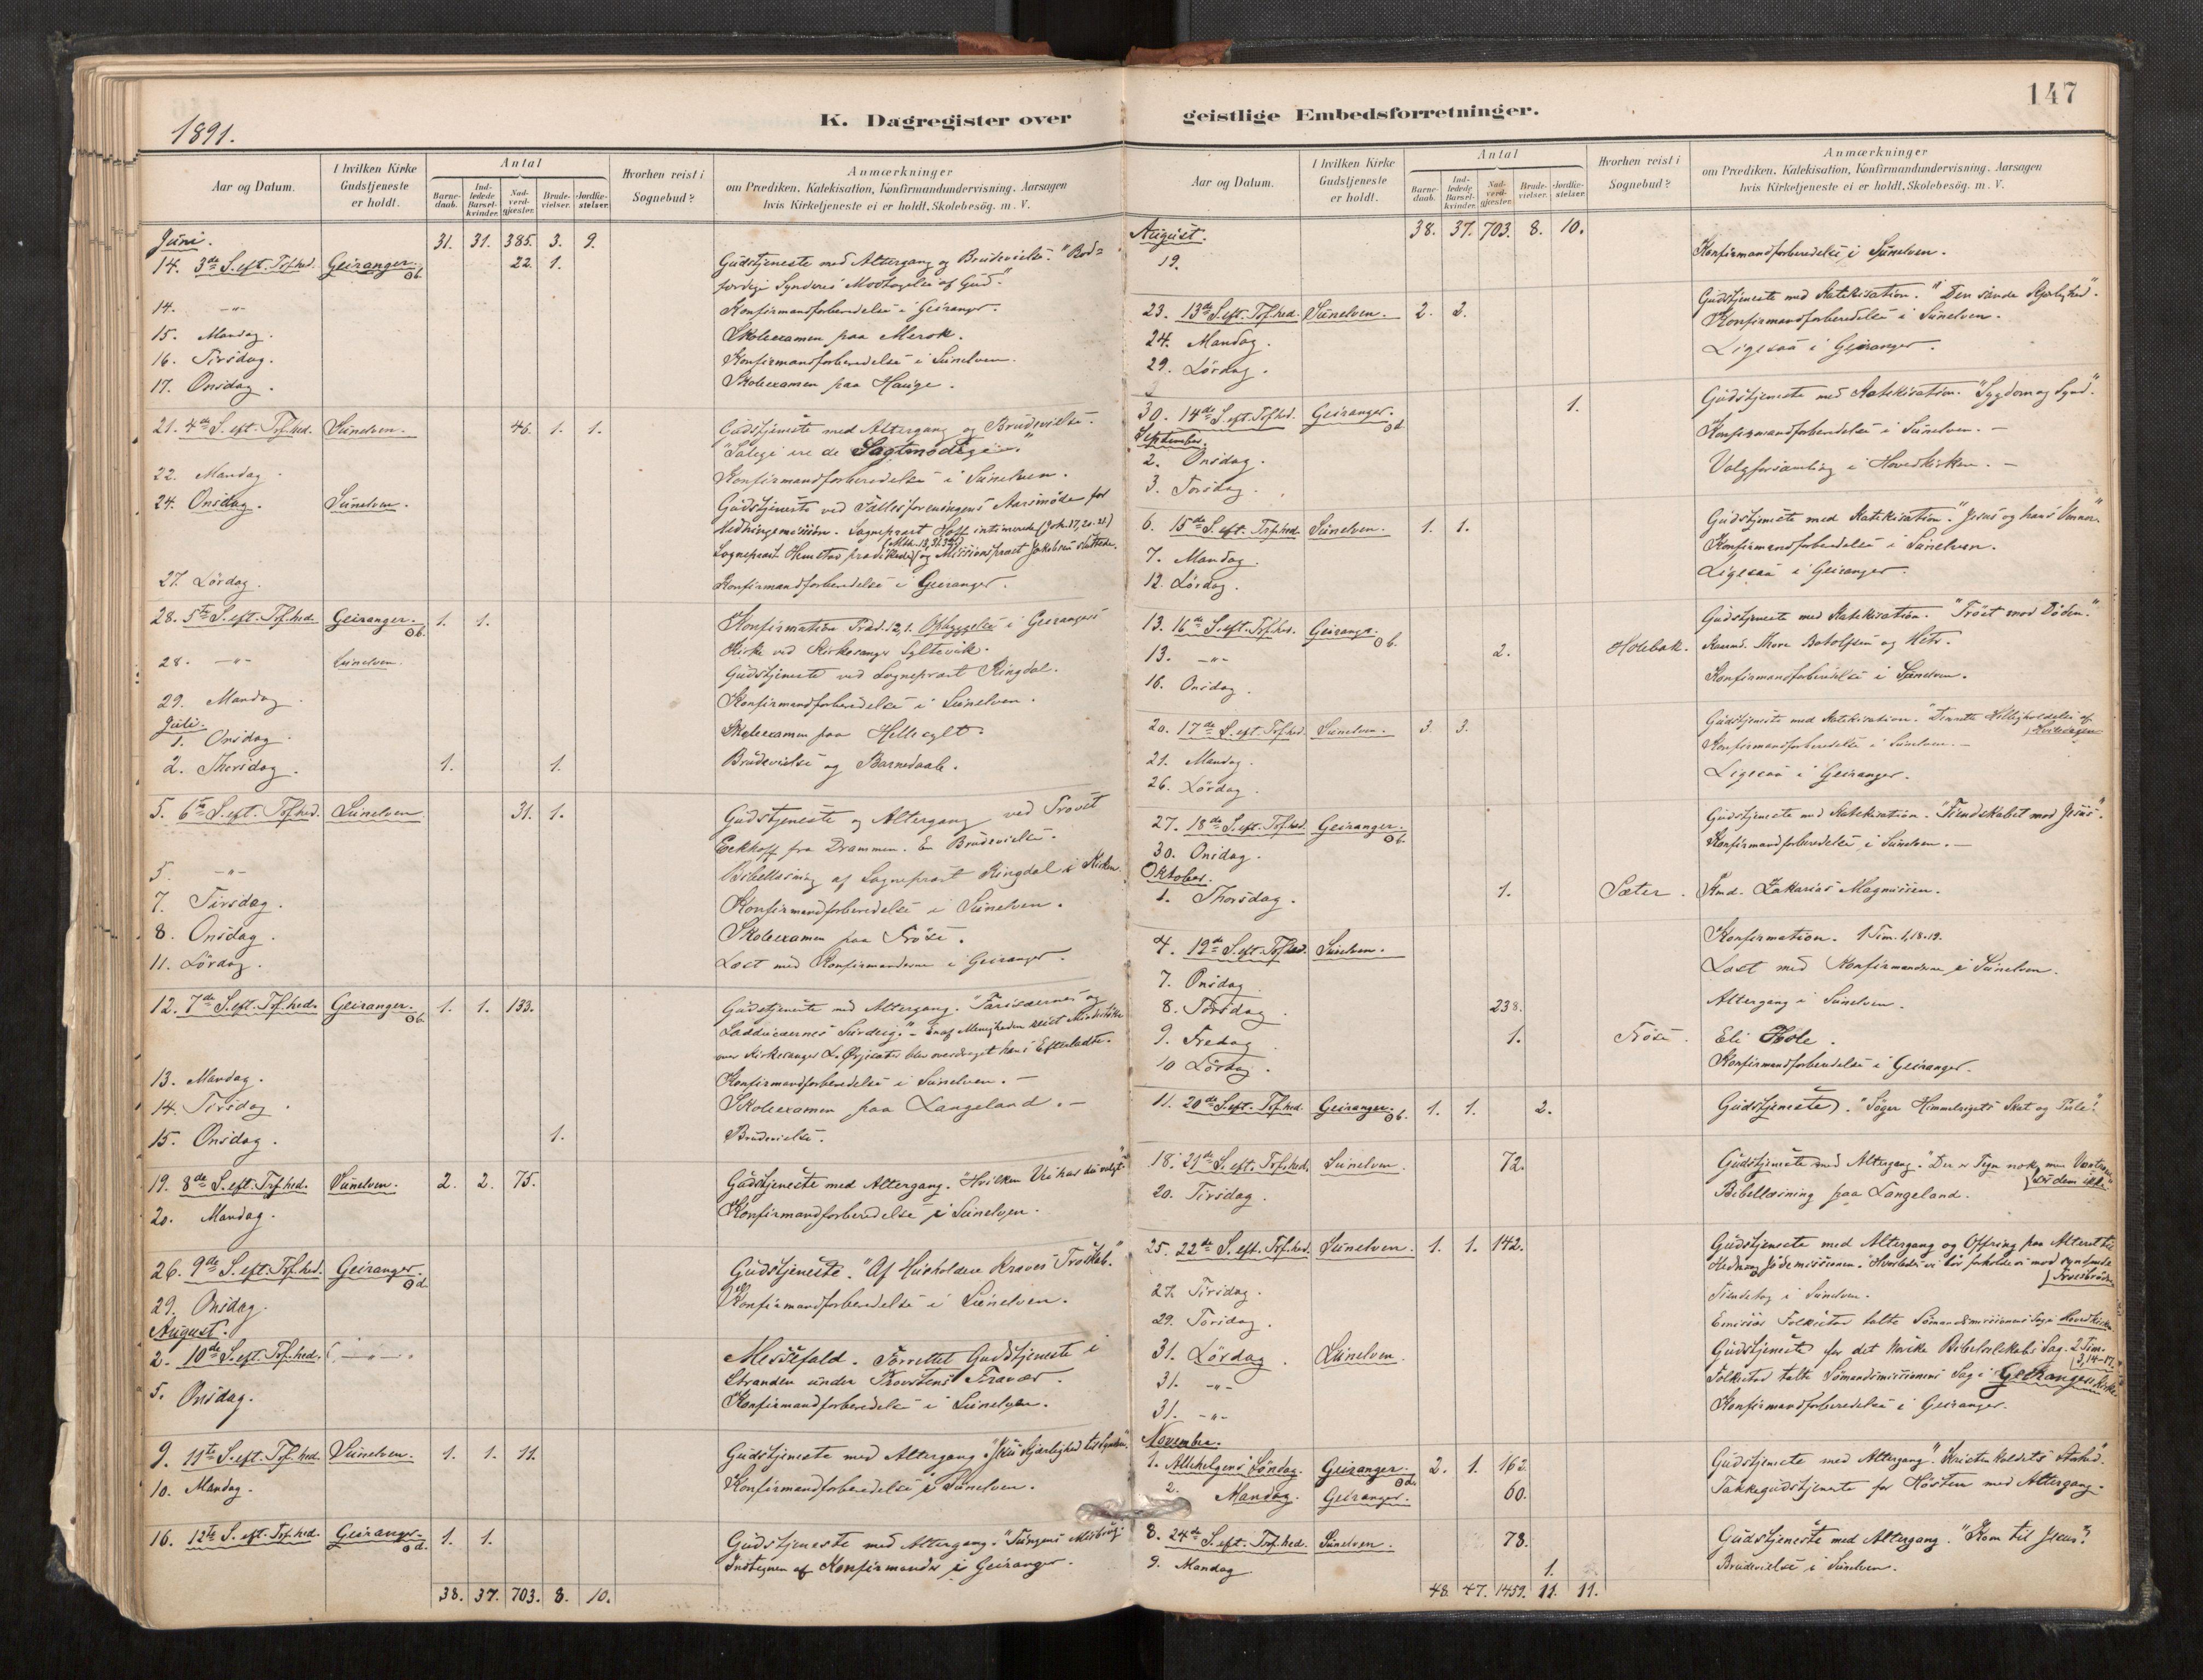 1891.
K. Dagregister over
Aar og Datum.
I hvilken Kirke Gudstjeneste er holdt.
Antal
Barne-daab.
Ind-ledede Barsel-kvinder.
Nad-verd-gjæster.
Brude-vielser.
Jordfæ-stelser.
Hvorhen reist i Sognebud?
Anmærkninger
om Prædiken, Katekisation, Konfirmandundervisning, Aarsagen
hvis Kirketjeneste ei er holdt, Skolebesög. m. V.
Juni. 31. 31. 385. 3. 9.
14. 3de S. eft. Trf.hed. Geiranger. 22. 1. Gudstjeneste med Altergang og Brudevielse. "Ret=
færdige Synderes Modtagelse af Gud."
14. -"- Konfirmandforberedelse i Geiranger.
15. Mandag. Skoleexamen paa Merok.
16. Tirsdag. Konfirmandforberedelse i Sunelven.
17. Onsdag. Skoleexamen paa Hauge.
21. 4de S. eft. Trf.hed. Sunelven. 46. 1. 1. Gudstjeneste med Altergang og Brudevielse.
"Salige ere de Sagtmodige."
22. Mandag Konfirmandforberedelse i Sunelven.
24. Onsdag. Sunelven. Gudstjeneste ved Fællesforeningens Aarsmöde for
Hedningemission. Sogneprest Hoff intimerede (Joh. 17, 20-21)
Sogneprest prædikede og Missionsprest Jakobsen sluttede.
27. Lördag. Konfirmandforberedelse i Geiranger.
28. 5te S. eft. Trf.hed. Geiranger. 1. 1. Konfirmation Præd. 2, 1. Opbyggelse i Geirangers
Kirke ved Kirkesanger Syltevik.
28. -"- Sunelven. Gudstjeneste ved Sogneprest Ringdal.
29. Mandag Konfirmandforberedelse i Sunelven.
Juli.
1. Onsdag. Skoleexamen paa Hellesylt.
2. Thorsdag. 1. 1. Brudevielse og Barnedaab.
5. 6te S. eft. Trf.hed. Sunelven. 31. 1. Gudstjeneste og Altergang ved Provst
Eckhoff fra Drammen. En Brudevielse.
5. -"- Bibellæsning af Sogneprest Ringdal i Kirken.
7. Tirsdag. Konfirmandforberedelse i Sunelven.
8. Onsdag. Skoleexamen paa Fröse.
11. Lördag. Læst med Konfirmanderne i Geiranger.
12. 7de S. eft. Trf.hed. Geiranger. 1. 1. 133. Gudstjeneste med Altergang. "Farisæernes og
Sadducæernes Surdeig." af Menigheden reist
over Kirkesanger L. blev overdraget hans Efterladte.
13. Mandag. Konfirmandforberedelse i Sunelven. -
14. Tirsdag. Skoleexamen paa Langeland. -
15. Onsdag. 1. Brudevielse.
19. 8de S. eft. Trf.hed. Sunelven. 2. 2. 75. Gudstjeneste med Altergang. "Hvilken Vei har du valgt"
20. Mandag. Konfirmandforberedelse i Sunelven.
26. 9de S. eft. Trf.hed. Geiranger. Gudstjeneste. "Af Husholdere kræves Troskab."
29. Onsdag. Konfirmandforberedelse i Sunelven.
August.
2. 10de S. eft. Trf.hed. Messefald. Forrettet Gudstjeneste i
Stranden under Provstens Fravær.
5. Onsdag. Konfirmandforberedelse i Sunelven.
9. 11te S. eft. Trf.hed. Sunelven. 1. 1. 11. Gudstjeneste med Altergang. "Jesu Kjærlighed til Syndere."
10. Mandag. Konfirmandforberedelse i Sunelven.
16. 12te S. eft. Trf.hed. Geiranger. 1. 1. Gudstjeneste med Altergang. "Tungens Misbrug."
Indtegnen af Konfirmander i Geiranger.
38. 37. 703. 8. 10.
147
geistlige Embedsforretninger.
Aar og Datum.
I hvilken Kirke Gudstjeneste er holdt.
Antal
Barne-daab.
Ind-ledede Barsel-kvinder.
Nad-verd-gjæster.
Brude-vielser.
Jordfæ-stelser.
Hvorhen reist i Sognebud?
Anmærkninger
om Prædiken, Katekisation, Konfirmandundervisning, Aarsagen
hvis Kirketjeneste ei er holdt, Skolebesög. m. V.
August. 38. 37. 703. 8. 10.
19. Konfirmandforberedelse i Sunelven.
23. 13de S. eft. Trf.hed. Sunelven. 2. 3. Gudstjeneste med Katekisation. "Den sande Kjærlighed".
24. Mandag. Konfirmandforberedelse i Sunelven.
29. Lördag. Ligesaa i Geiranger.
30. 14de S. eft. Trf.hed. Geiranger. 1. Gudstjeneste med Katekisation. "Sygdom og Synd."
September.
2. Onsdag. Konfirmandforberedelse i Sunelven. -
3. Torsdag. Valgforsamling i Hovedkirken. -
6. 15de S. eft. Trf.hed. Sunelven. 1. 1. Gudstjeneste med Katekisation. "Jesus og hans Venner"
7. Mandag. Konfirmandforberedelse i Sunelven.
12. Lördag. Ligesaa i Geiranger.
13. 16de S. eft. Trf.hed. Geiranger. Gudstjeneste med Katekisation. "Tröst mod Döden."
13. -"- 2. Holebak. More Botolfsen og
16. Onsdag. Konfirmandforberedelse i Sunelven.
20. 17de S. eft. Trf.hed. Sunelven. 3. 3. Gudstjeneste med Katekisation. "Den rette Helligholdelse af Hviledagen
21. Mandag. Konfirmandforberedelse i Sunelven. -
26. Lördag. Ligesaa i Geiranger.
27. 18de S. eft. Trf.hed. Geiranger. Gudstjeneste med Katekisation. "Fiendskabet mod Jesus".
30. Onsdag. Konfirmandforberedelse i Sunelven. -
Oktober.
1. Thorsdag. 1. Sæter. Kmd. Zakarias Magnussen.
4. 19de S. eft. Trf.hed. Sunelven. Konfirmation. 1 Tim. 1, 18-19.
7. Onsdag. Læst med Konfirmanderne i Sunelven.
8. Torsdag. 238. Altergang i Sunelven.
9. Fredag. 1. Fröse. Eli Hole.
10 Lördag. Konfirmandforberedelse i Geiranger.
11. 20de S. eft. Trf.hed. Geiranger. 1. 1. 2. Gudstjeneste. "Söger Himmerigets Skat og Perle".
18. 21de S. eft. Trf.hed. Sunelven. 72. Gudstjeneste med Altergang. "Der er Tegn nok, men Vantroen dem ikke"
20. Tirsdag. Bibellæsning paa Langeland.
25. 22de S. eft. Trf.hed. Sunelven. 1. 1. 142. Gudstjeneste med Altergang og Offring paa Alteret til
Hedning og Jödemissionen. "Hvorledes vi bör forholde os mod syndende Troesbrödre
27. Tirsdag. i Sunelven.
29. Torsdag. Emissær talte Sömandsmissionens Sag i Hovedkirken.
31. Lördag. Sunelven. Gudstjeneste for det Norske Bibelselskabs Sag. 2 Tim. 3, 14-17.
31. -"- talte Sömandsmissionens Sag i Geirangers Kirke
31. -"- Konfirmandforberedelse i Geiranger.
November.
1. Allehelgens Söndag. Geiranger. 2. 1. 162. Gudstjeneste med Altergang.
2. Mandag. Geiranger. 60. Takkegudstjeneste for Hösten med Altergang.
8. 24de S. eft. Trf.hed. Sunelven. 78. Gudstjeneste med Altergang. "Kom til Jesus".
9. Mandag 1. Brudevielse i Sunelven.
48. 47. 1459. 11. 11.